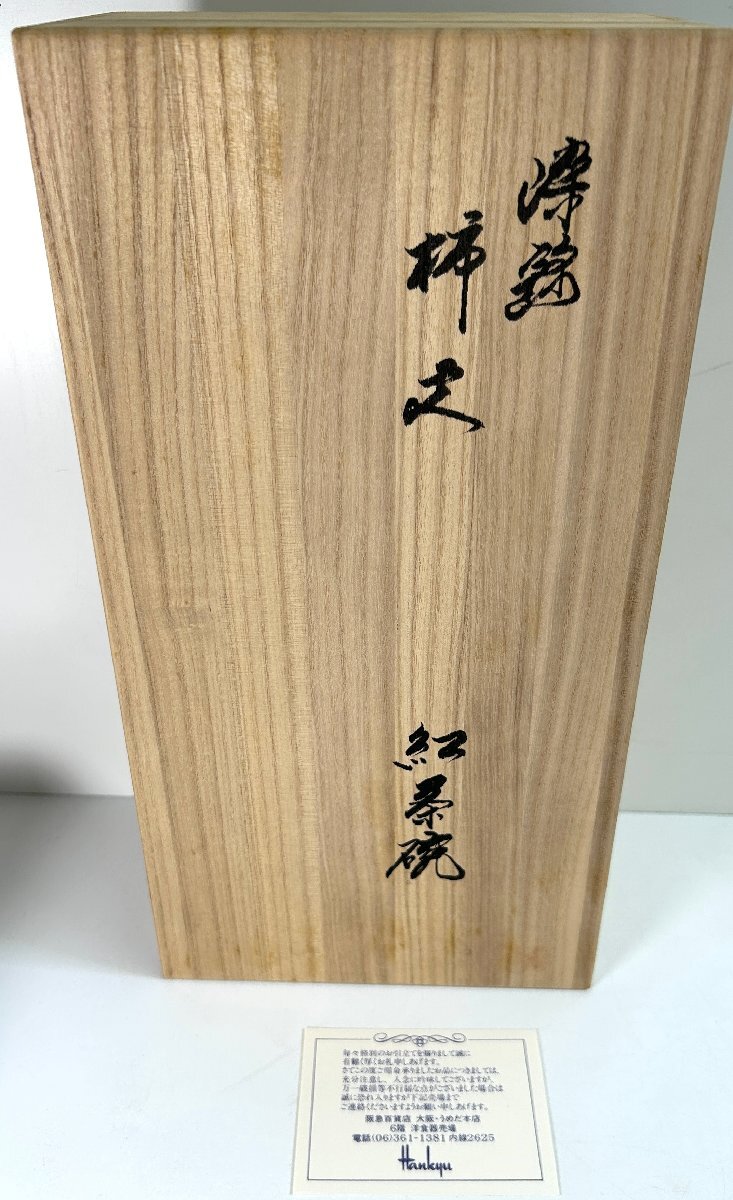 染錦
柿丈
紅茶碗
毎々格別のお引立てを賜りまして誠に
有難く厚くお礼申しあげます。
さてこの度ご用命承りましたお品につきましては、
充分注意し、入念に吟味してございますが、
万一破損等不行届な点がございました場合は
誠に恐れ入りますが下記売場まで
ご連絡くださいますようお願い申しあげます。
阪急百貨店 大阪・うめだ本店
6階 洋食器売場
電話(06)361-1381 内線2625
Hankyu